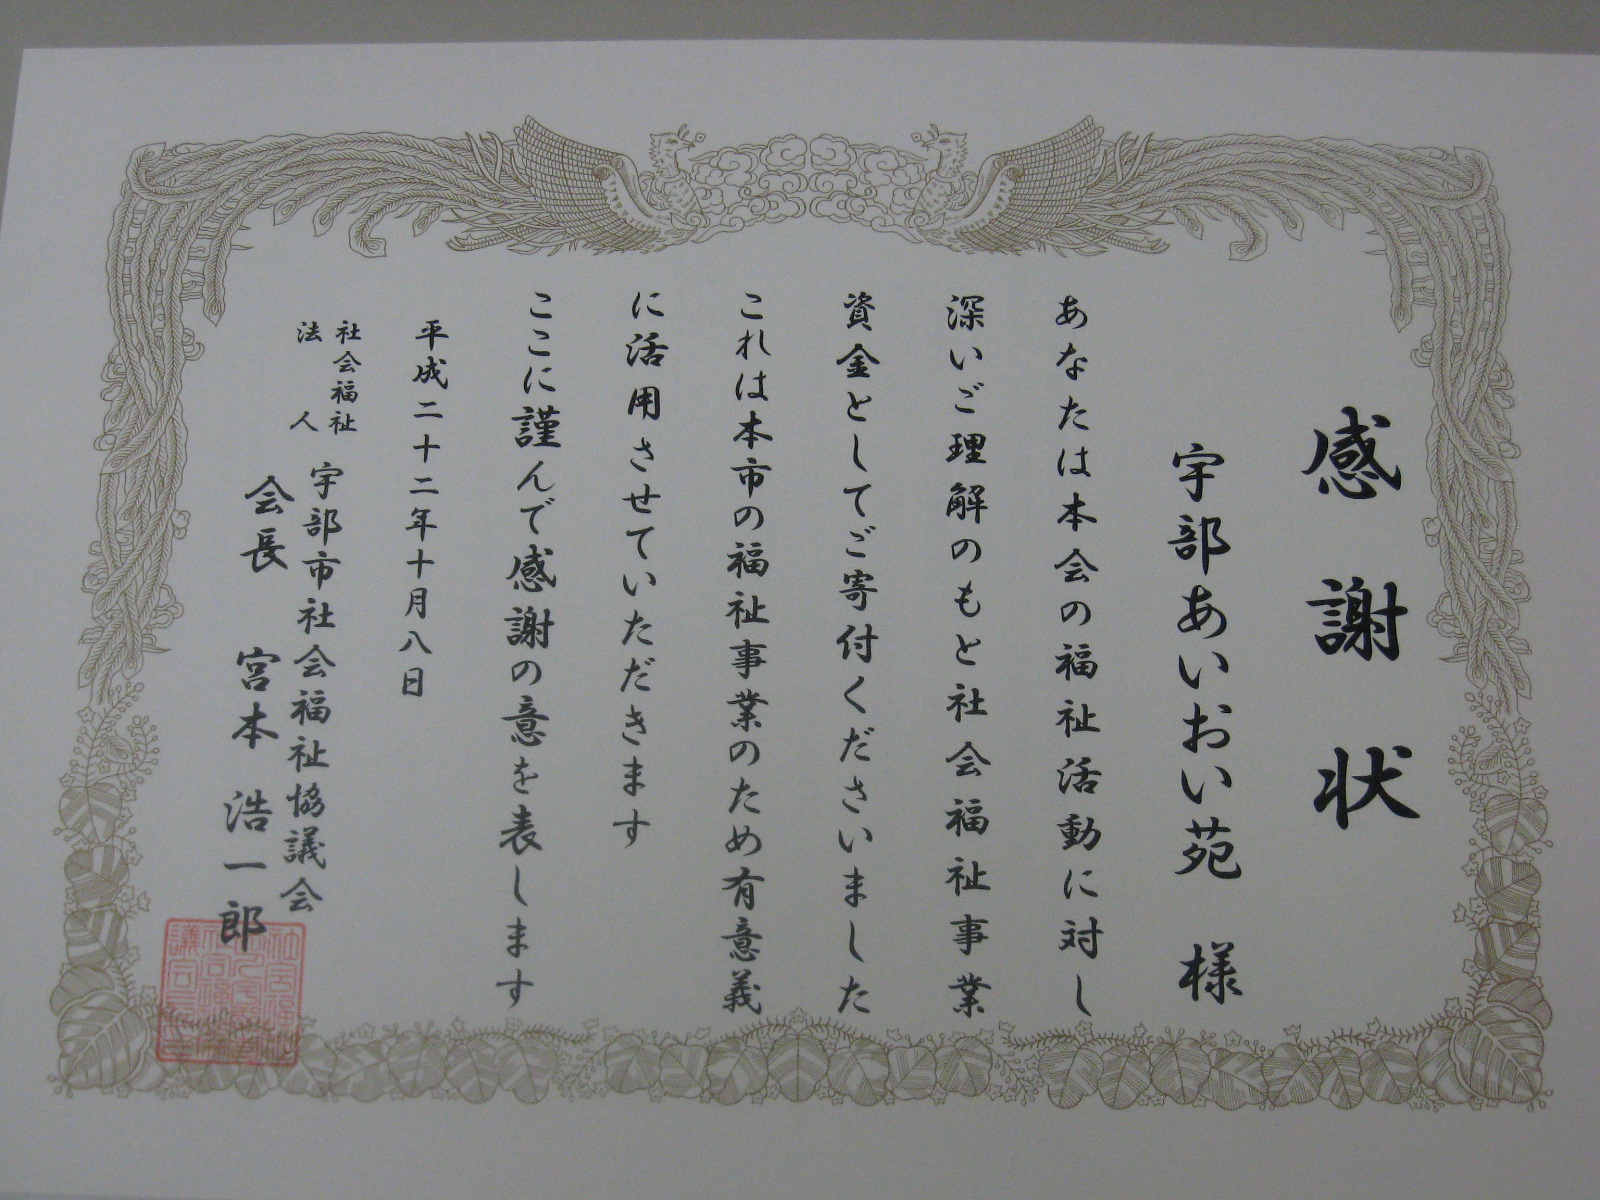 感謝状
宇部あいおい苑 様
あなたは本会の福祉活動に対し
深いご理解のもと社会福祉事業
資金としてご寄付くださいました
これは本市の福祉事業のため有意義
に活用させていただきます
ここに謹んで感謝の意を表します
平成二十二年十月八日
社会福祉
法人
宇部市社会福祉協議会
会長 宮本浩一郎